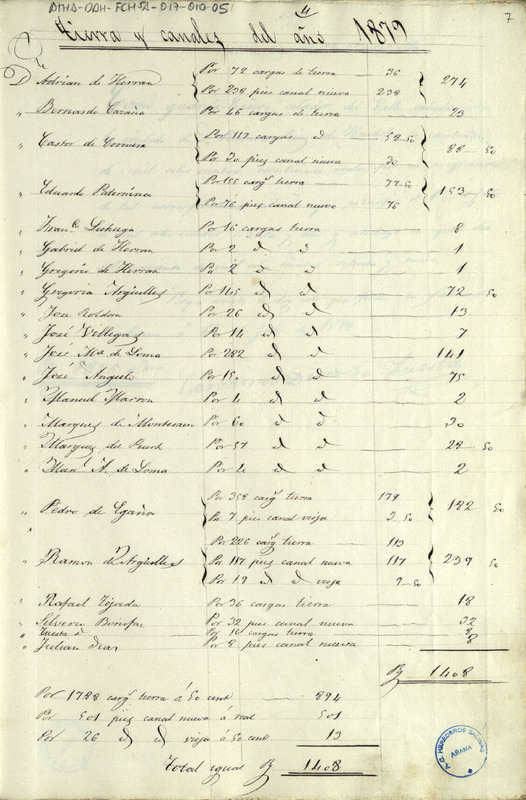 AHHA-DDH-FCH-54-017-010-051
7
Tierra y canales del año 1879
D. Adrian de Herran Por 72 cargas de tierra 36
Por 238 pies canal nueva 238 274
" Bernardo Por 46 cargas de tierra 23
" Castor de Por 117 cargas d 58-50
Por 30 pies canal nueva 30 88 50
" Eduardo Paternina Por 155 cargs tierra 77-50
Por 76 pies canal nueva 76 153 50
" Franco Lechuga Por 16 cargas tierra 8
" Gabriel de Herran Por 2 d d 1
" Gregorio de Herran Por 2 d d 1
" Gregoria Argüelles Por 145 d d 72 50
" Jose Roldan Por 26 d d 13
" José Villegas Por 14 d d 7
" José Ma. de Loma Por 282 d d 141
" José Angulo Por 150 d d 75
" Manuel Marron Por 4 d d 2
" Marques de Montesern Por 60 d d 30
" Marques del Puert Por 57 d d 28 50
" Manl A. de Loma Por 4 d d 2
" Pedro de Egaña Por 358 cargs tierra 179
Por 7 pies canal vieja 3-50 182 50
" Ramon de Argüelles Por 226 cargs tierra 113
Por 117 pies canal nueva 117
Por 19 d d vieja 9-50 239 50
" Rafael Tejada Por 36 cargas tierra 18
" Silverio Bonifar Por 32 pies canal nueva 32
" Por 16 cargas tierra 8
" Julian Diaz Por 8 pies canal nueva 8
R 1408
Por 1788 cargs tierra á 50 cent 894
Por 501 pies canal nueva á real 501
Por 26 d d vieja á 50 cent 13
Total igual R 1408
A.D. HEREDEROS SALINAS
AÑANA